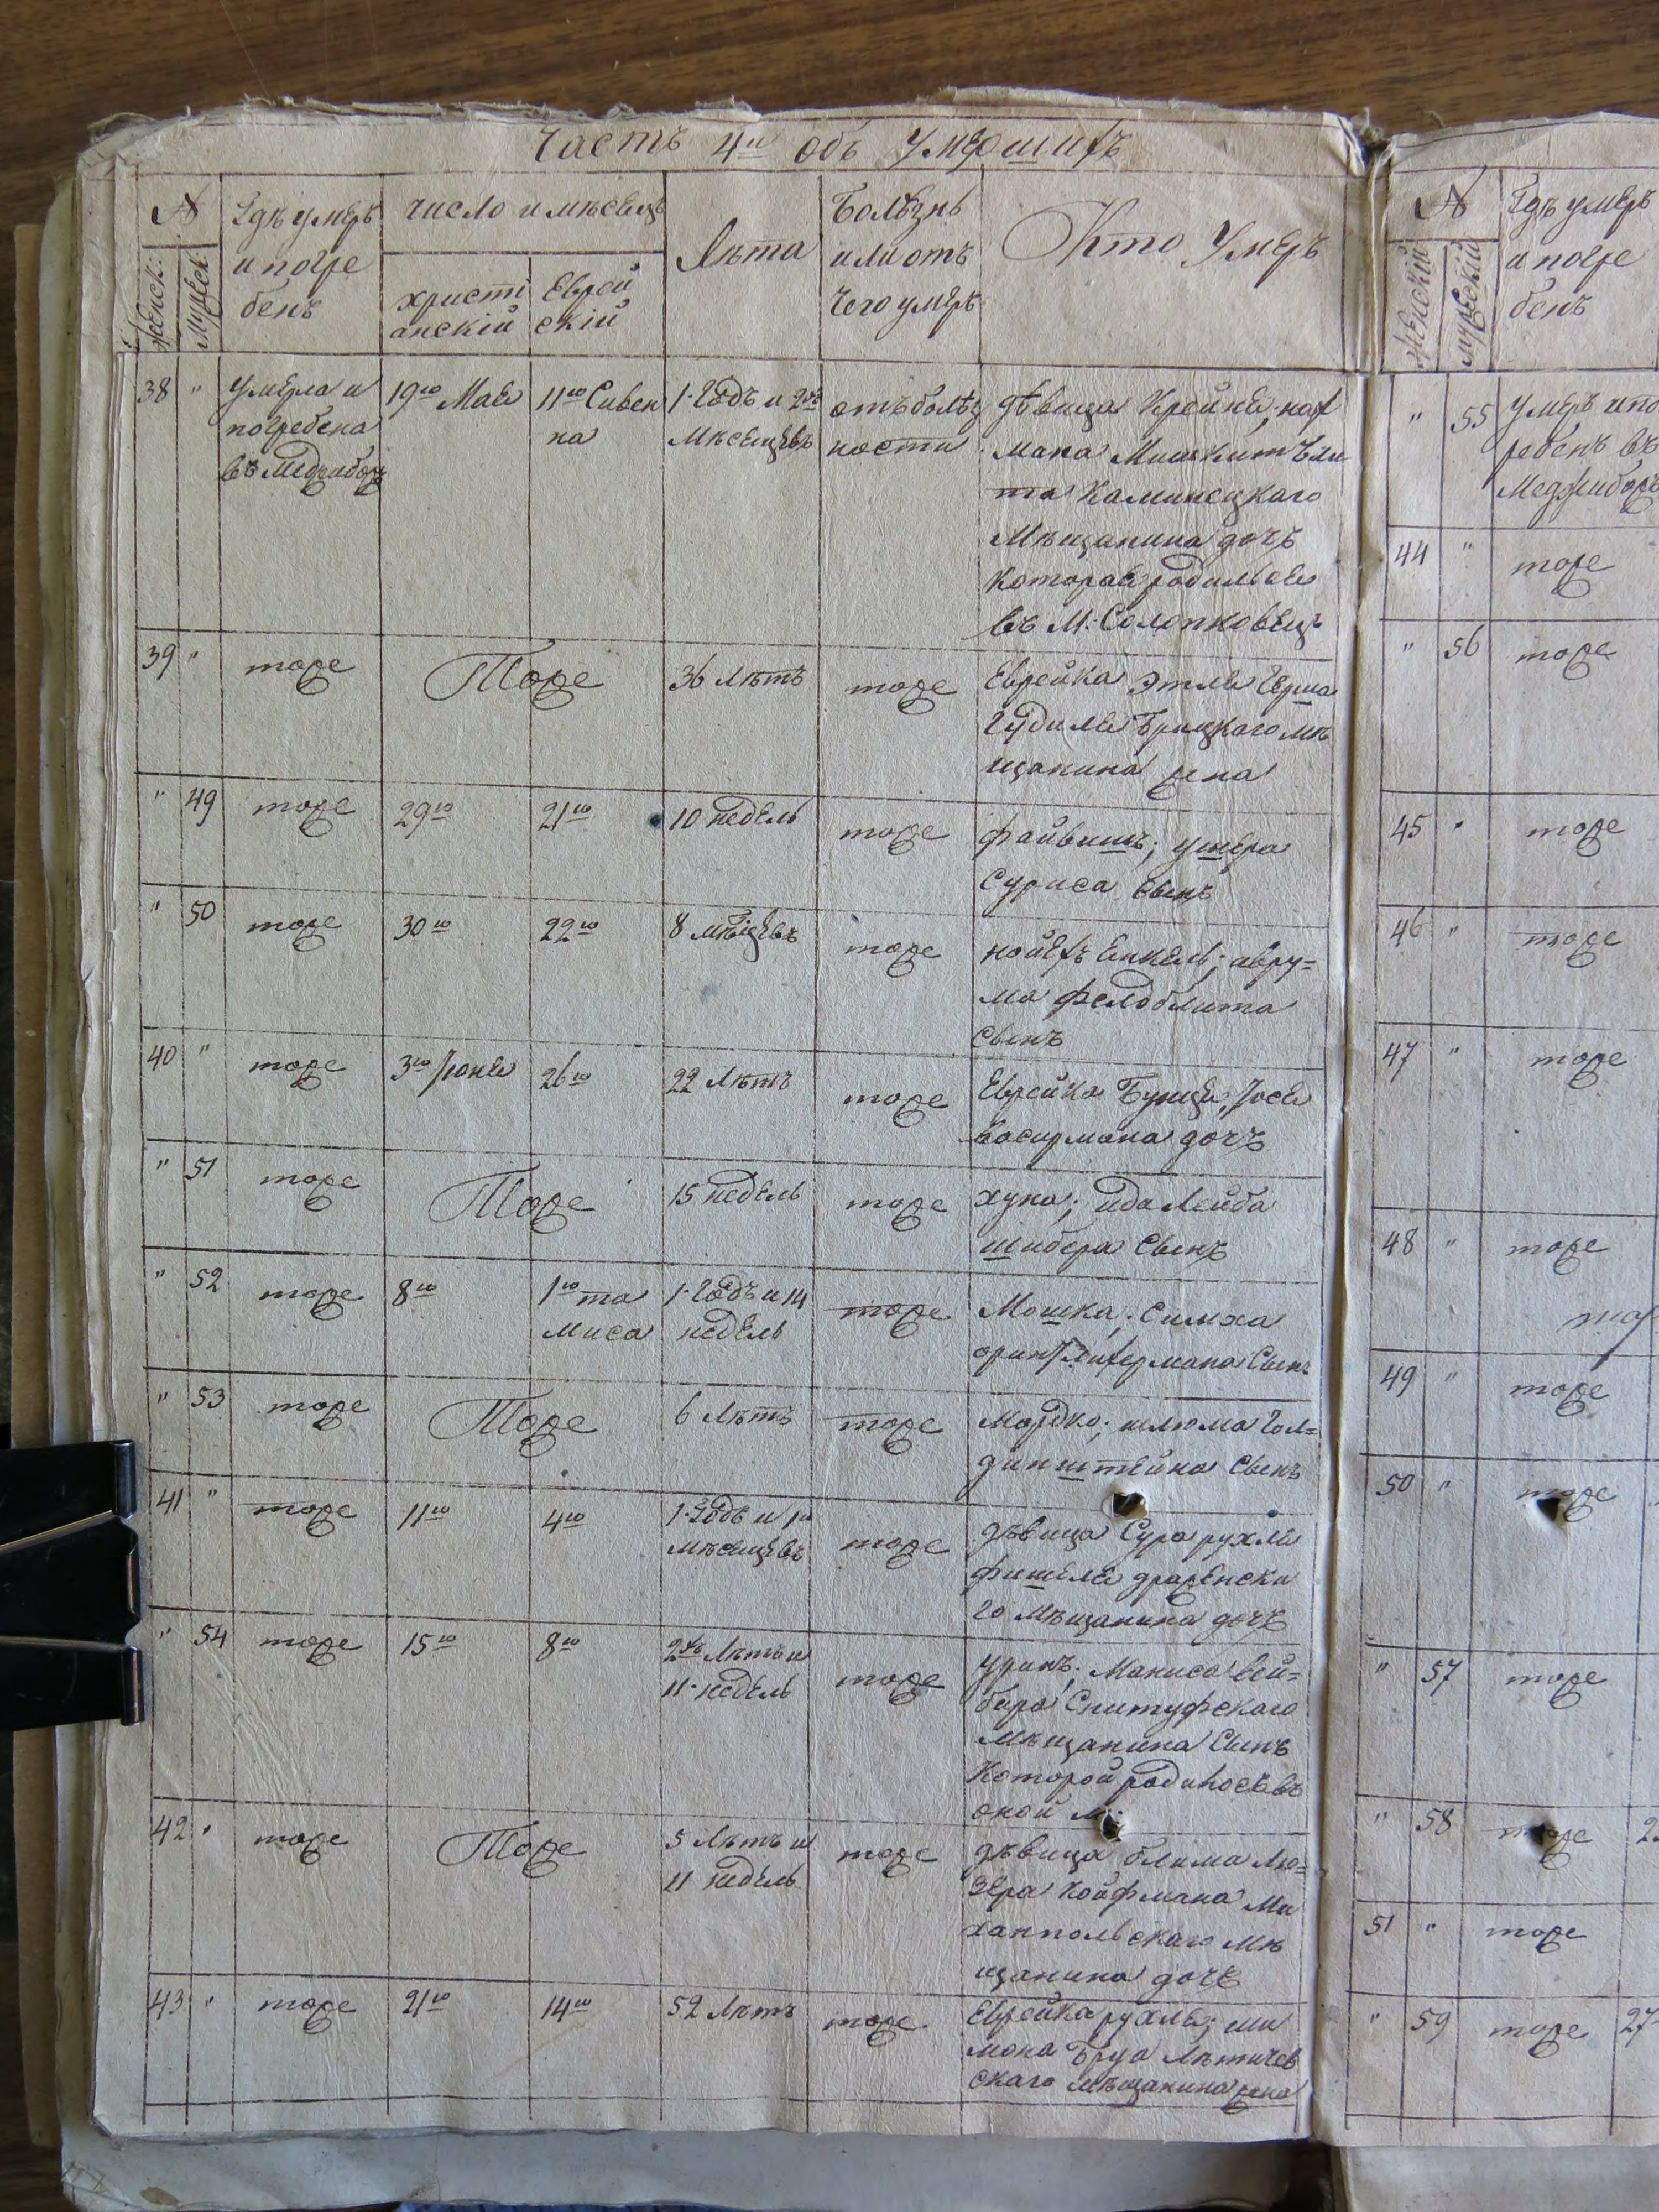 Часть 4я объ Умершихъ
№
Женск:
Мужеск:
Гдѣ умеръ
и погре
бенъ
число и мѣсецъ
христі
анскій
Еврей
скій
Лѣта
Болѣзнь
или отъ
чего умеръ
Кто Умеръ
38 " умерла и
погребена
въ Меджибож
19го Мая
11го Сивен
на
1. Годъ и 2хъ
Мѣсецевъ
отъ болѣз
ности
дѣвица Крейне; нах
мана
та Каминецкаго
Мѣщанина дочь
которая родилься
въ М. Солопковец
39 " тоже Тоже 36 Лѣтъ тоже
Еврейка Этля Герша
Гудиля Брицкого мѣ
щанина жена
" 49 тоже 29го 21го 10 недѣль тоже
файвишъ; ушера
Суриса Сынъ
" 50 тоже 30го 22го 8 мѣсіцевъ тоже
нойехъ Енкель; авру=
ма фелдблита
Сынъ
40 " тоже 3го Іюня 26го 22 Лѣтъ тоже
Еврейка Бунця, Іося
васирмана дочъ
" 51 тоже Тоже 15 недѣль тоже
хуна; ида Лейба
шибера Сынъ
" 52 тоже 8го 1го та
миса
1. Годъ и 14
недѣль
тоже
Мошка; Симха
Сынъ
" 53 тоже Тоже 6 Лѣтъ тоже
Мордко; шлюма Гол=
динштейна Сынъ
41 " тоже 11го 4го 1. Годъ и
мѣсецевъ
тоже
дѣвица Сура рухля
фишеля драженски
го Мѣщанина дочъ
" 54 тоже 15го 8го 2хъ Лѣтъ и
11. недѣль
тоже
уринъ. Маниса вей=
бира Снитуфскаго
мѣщанина Сынъ
Которой родилосъ въ
оной м:
42 " тоже Тоже 5 Лѣтъ и
11 недѣль
тоже
дѣвица блима Лю=
зера койфмана Ми
ханпольскаго мѣ
щанина дочъ
43 " тоже 21го 14го 52 Лѣтъ тоже
Еврейка рухля; ши
мона Бруа Лѣтичев
скаго мѣщанина жена
№
Женскій
мужескій
Гдѣ умеръ
и погре
бенъ
" 55 умеръ и по
ребенъ въ
Меджибож
44 " тоже
" 56 тоже
45 " тоже
46 " тоже
47 " тоже
48 " тоже
49 " тоже
50 " тоже
" 57 тоже
" 58 тоже
51 " тоже
" 59 тоже 27